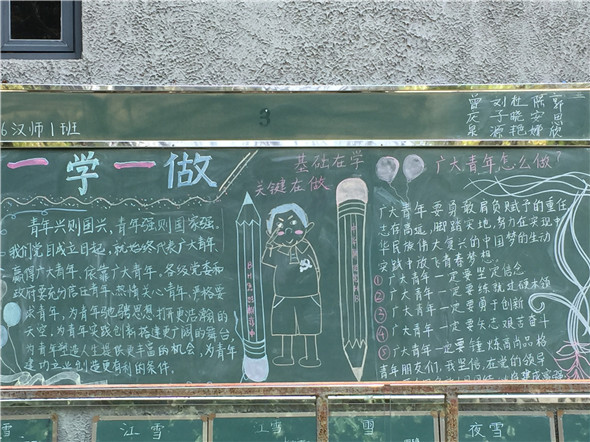 3
6汉师1班
曾 刘 杜 陈 郭
庆 子 晓 安 思
泉 源 艳 娜 欣
一学一做
基础在学
关键在做
青年兴则国兴,青年强则国家强。
我们党自成立日起,就始终代表广大青年、
赢得广大青年、依靠广大青年。各级党委和
政府要充分信任青年、热情关心青年、严格要
求青年,为青年驰骋思想打开更浩瀚的
天空,为青年实践创新搭建更广阔的舞台,
为青年塑造人生提供更丰富的机会,为青年
建功立业创造更有利的条件。
广大青年怎么做?
广大青年要勇敢肩负赋予的重任
志存高远,脚踏实地,努力在实现中
华民族伟大复兴的中国梦的生动
实践中放飞青春梦想
① 广大青年一定要坚定信念
② 广大青年一定要练就过硬本领
③ 广大青年一定要勇于创新
④ 广大青年一定要矢志艰苦奋斗
⑤ 广大青年一定要锤炼高尚品格
青年朋友们,我坚信,在党的领导
雪
江雪
雪
夜雪